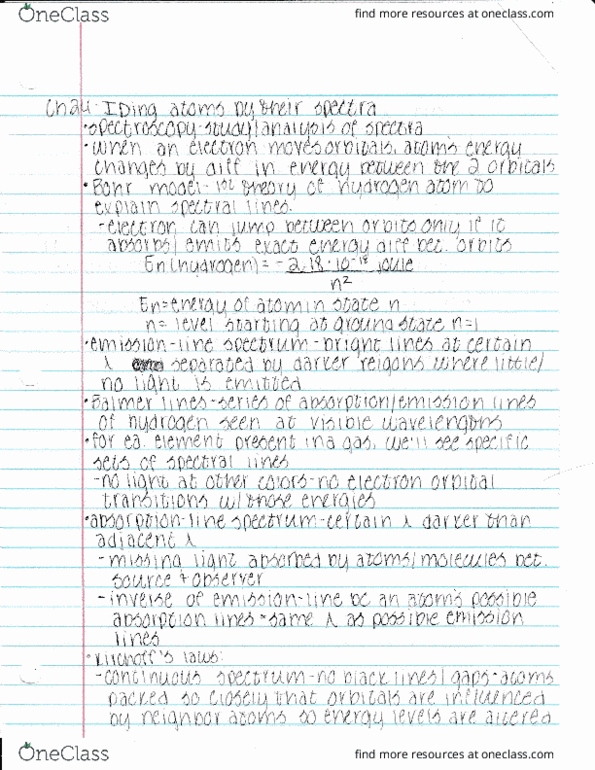 OneClass
find more resources at oneclass.com
Ch24: IDing atoms by their spectra
•spectroscopy-study/analysis of spectra
•when an electron moves orbitals, atoms energy
changes by diff in energy between the 2 orbitals
•Bohr model-1st theory of hydrogen atom to
explain spectral lines.
-electron can jump between orbits only if it
absorbs/emits exact energy diff bet. orbits
En(hydrogen)= -2.18·10⁻¹⁸ joule
n²
En=energy of atom in state n
n= level starting at ground state n=1
•emission-line spectrum-bright lines at certain
λ separated by darker reigons where little/
no light is emitted
•Balmer lines-series of absorption/emission lines
of hydrogen seen at visible wavelengths
•for ea. element present in a gas, we'll see specific
sets of spectral lines
-no light at other colors-no electron orbital
transitions w/ those energies
•absorption-line spectrum-certain λ darker than
adjacent λ
-missing light absorbed by atoms/molecules bet.
source + observer
-inverse of emission-line bc an atoms possible
absorption lines=same λ as possible emission
lines
•Kirchoff's laws:
-continuous spectrum-no black lines/gaps-atoms
packed so closely that orbitals are influenced
by neighbor atoms so energy levels are altered
OneClass
find more resources at oneclass.com